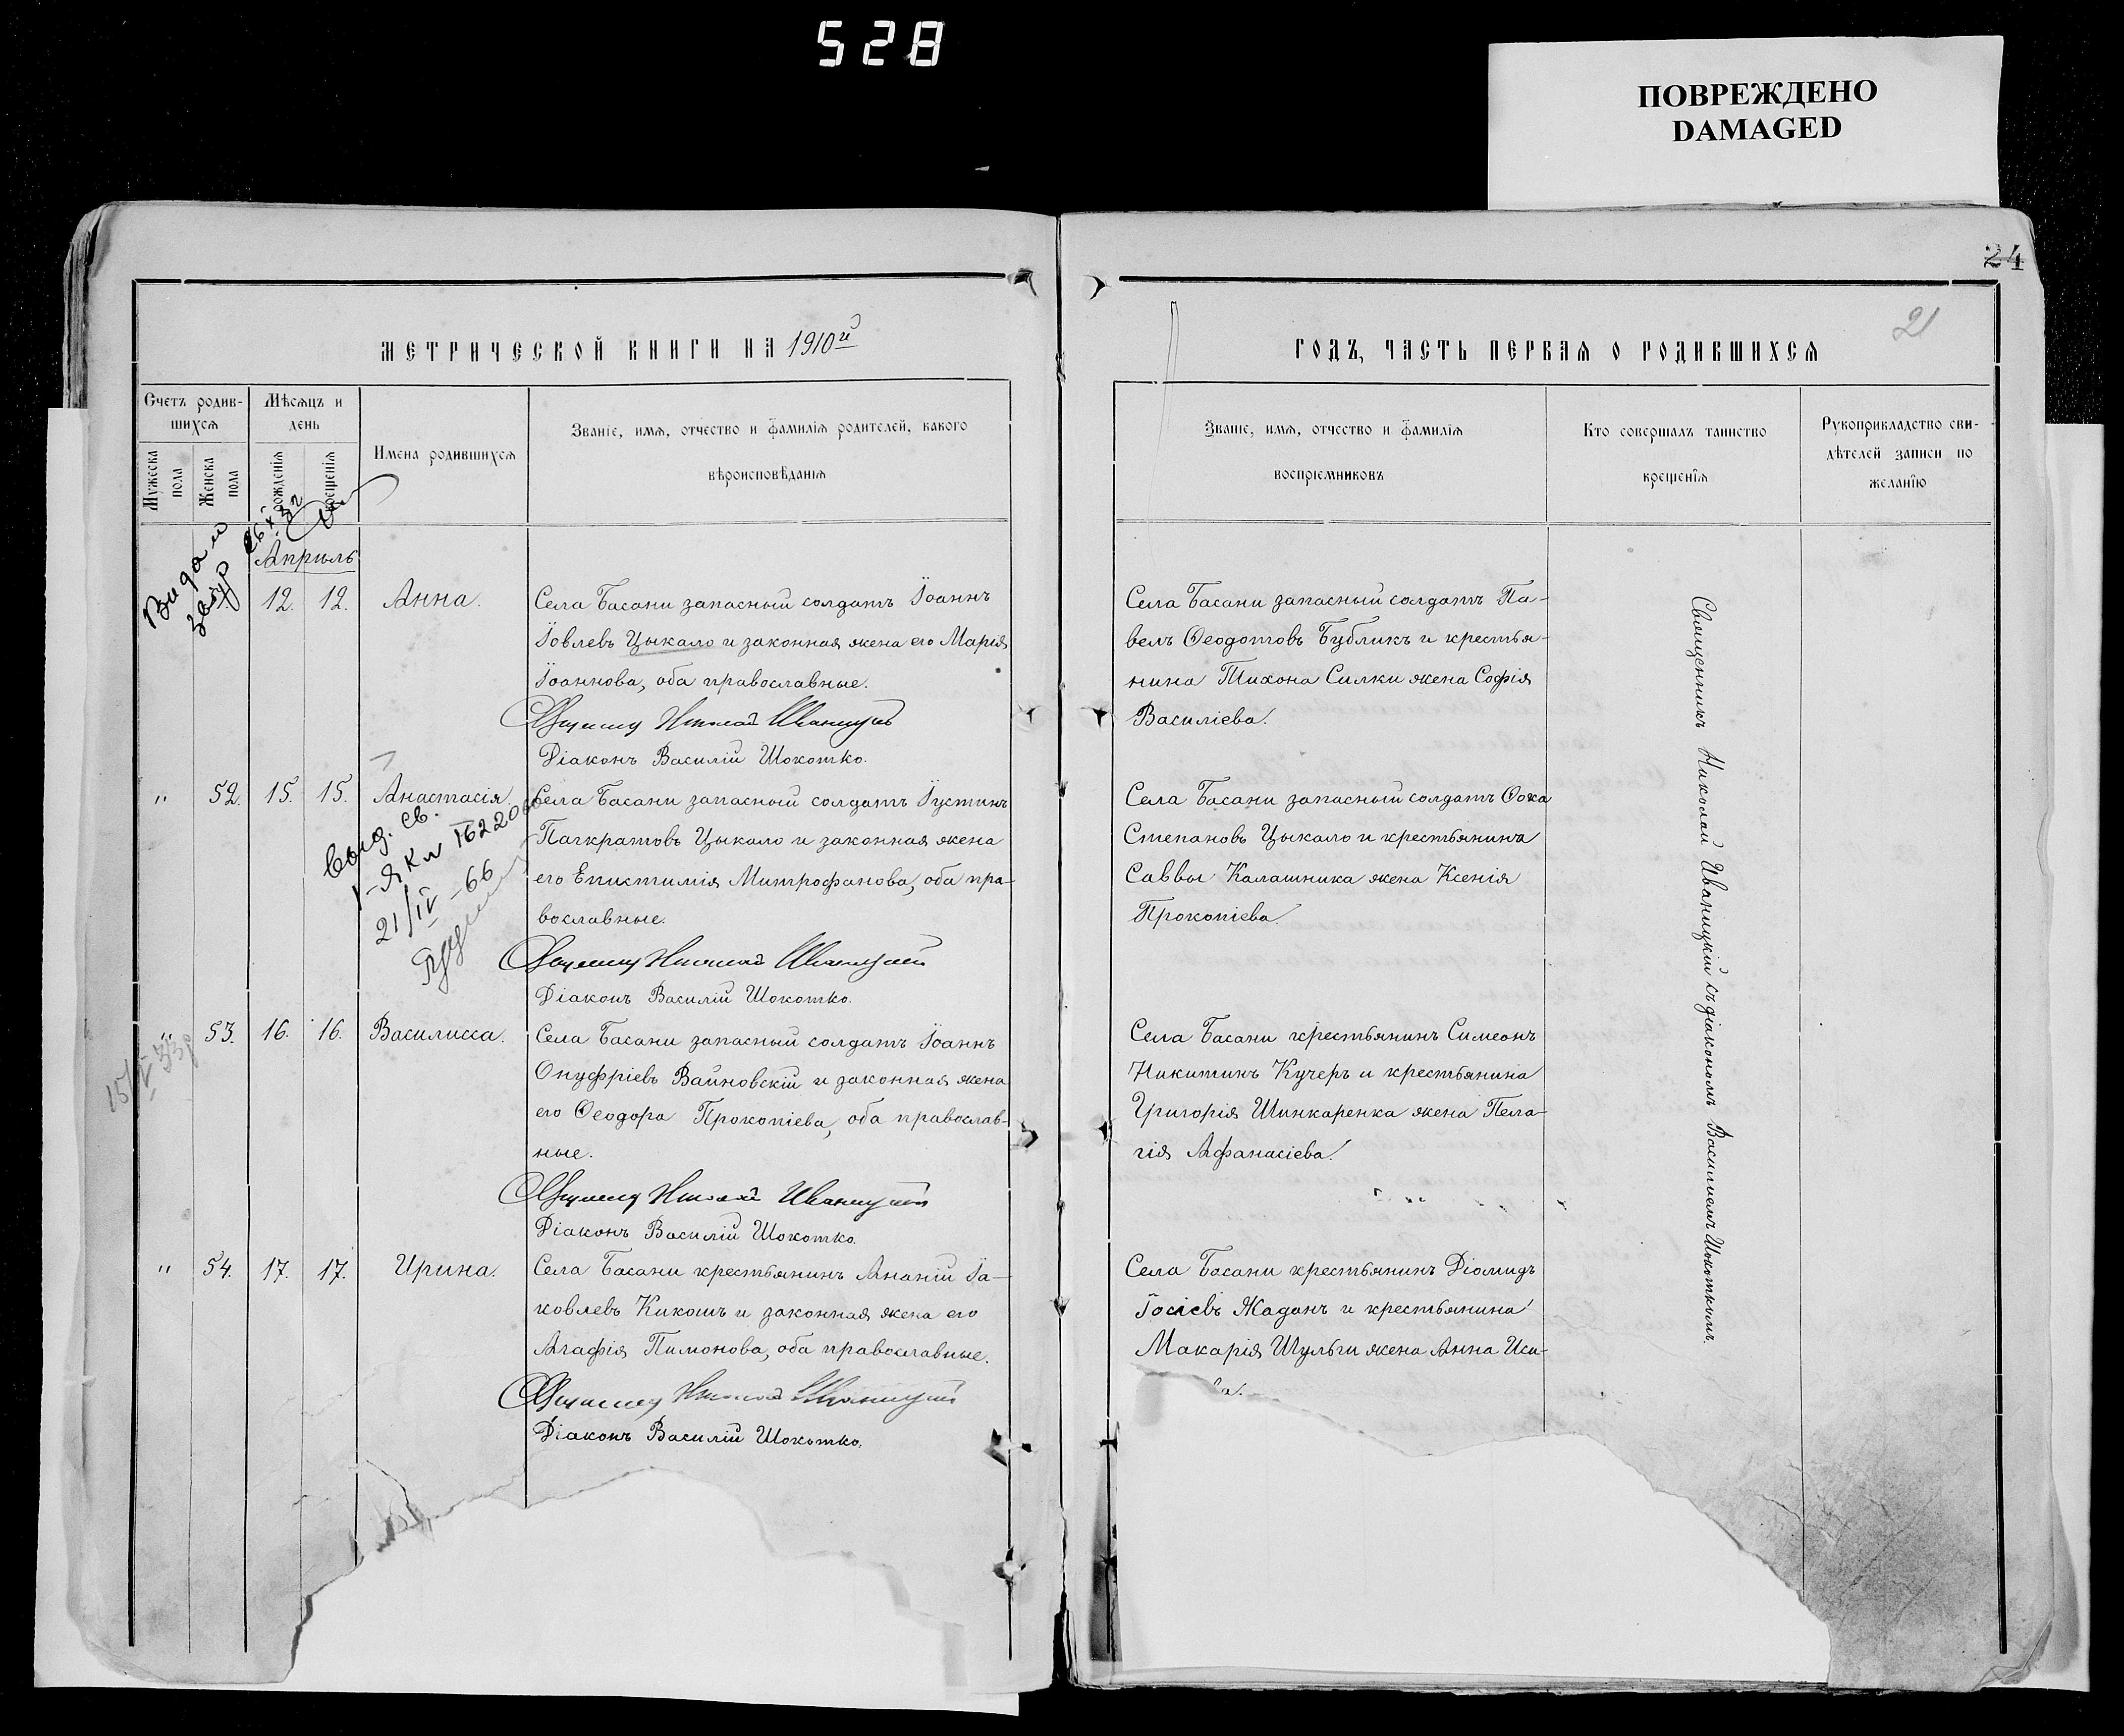 528
ПОВРЕЖДЕНО
DAMAGED
24
21
МЕТРИЧЕСКОЙ КНИГИ НА 1910й
Счетъ родив-
шихся
Мѣсяцъ и
день
Имена родившихся
Званіе, имя, отчество и фамилія родителей, какого
вѣроисповѣданія
Мужеска
пола
Женска
пола
рожденія
крещенія
Апрѣль
12. 12. Анна.
Села Басани запасный солдатъ Іоаннъ
Іовлевъ Цыкало и законная жена его Марія
Іоаннова, оба православные.
Николай Иваницкій
Діаконъ Василій Шокотко.
" 52. 15. 15. Анастасія.
Села Басани запасный солдатъ Іустинъ
Панкратовъ Цыкало и законная жена
его Епистимія Митрофанова, оба пра-
вославные.
Николай Иваницкій
Діаконъ Василій Шокотко.
выд. св.
21/IV-66
" 53. 16. 16. Василисса.
Села Басани запасный солдатъ Іоаннъ
Онуфріевъ Вайновскій и законная жена
его Ѳеодора Прокопіева, оба православ-
ные.
Николай Иваницкій
Діаконъ Василій Шокотко.
" 54. 17. 17. Ирина.
Села Басани крестьянинъ Ананій Іа-
ковлевъ Кикошъ и законная жена его
Агафія Пимонова, оба православные.
Николай Иваницкій
Діаконъ Василій Шокотко.
ГОДЪ, ЧАСТЬ ПЕРВАЯ О РОДИВШИХСЯ
Званіе, имя, отчество и фамилія
воспріемниковъ
Кто совершалъ таинство
крещенія
Рукоприкладство сви-
дѣтелей записи по
желанію
Села Басани запасный солдатъ Па-
велъ Ѳеодотовъ Бубликъ и крестья-
нина Тихона Силки жена Софія
Василіева.
Села Басани запасный солдатъ Ѳока
Степановъ Цыкало и крестьянина
Саввы Калашника жена Ксенія
Прокопіева.
Села Басани крестьянинъ Симеонъ
Никитинъ Кучеръ и крестьянина
Григорія Шинкаренка жена Пела-
гія Афанасіева.
Села Басани крестьянинъ Діомидъ
Іосіевъ Жаданъ и крестьянина
Макарія Шульги жена Анна Иси-
ва.
Священникъ Николай Иваницкій съ діакономъ Василіемъ Шокоткомъ.